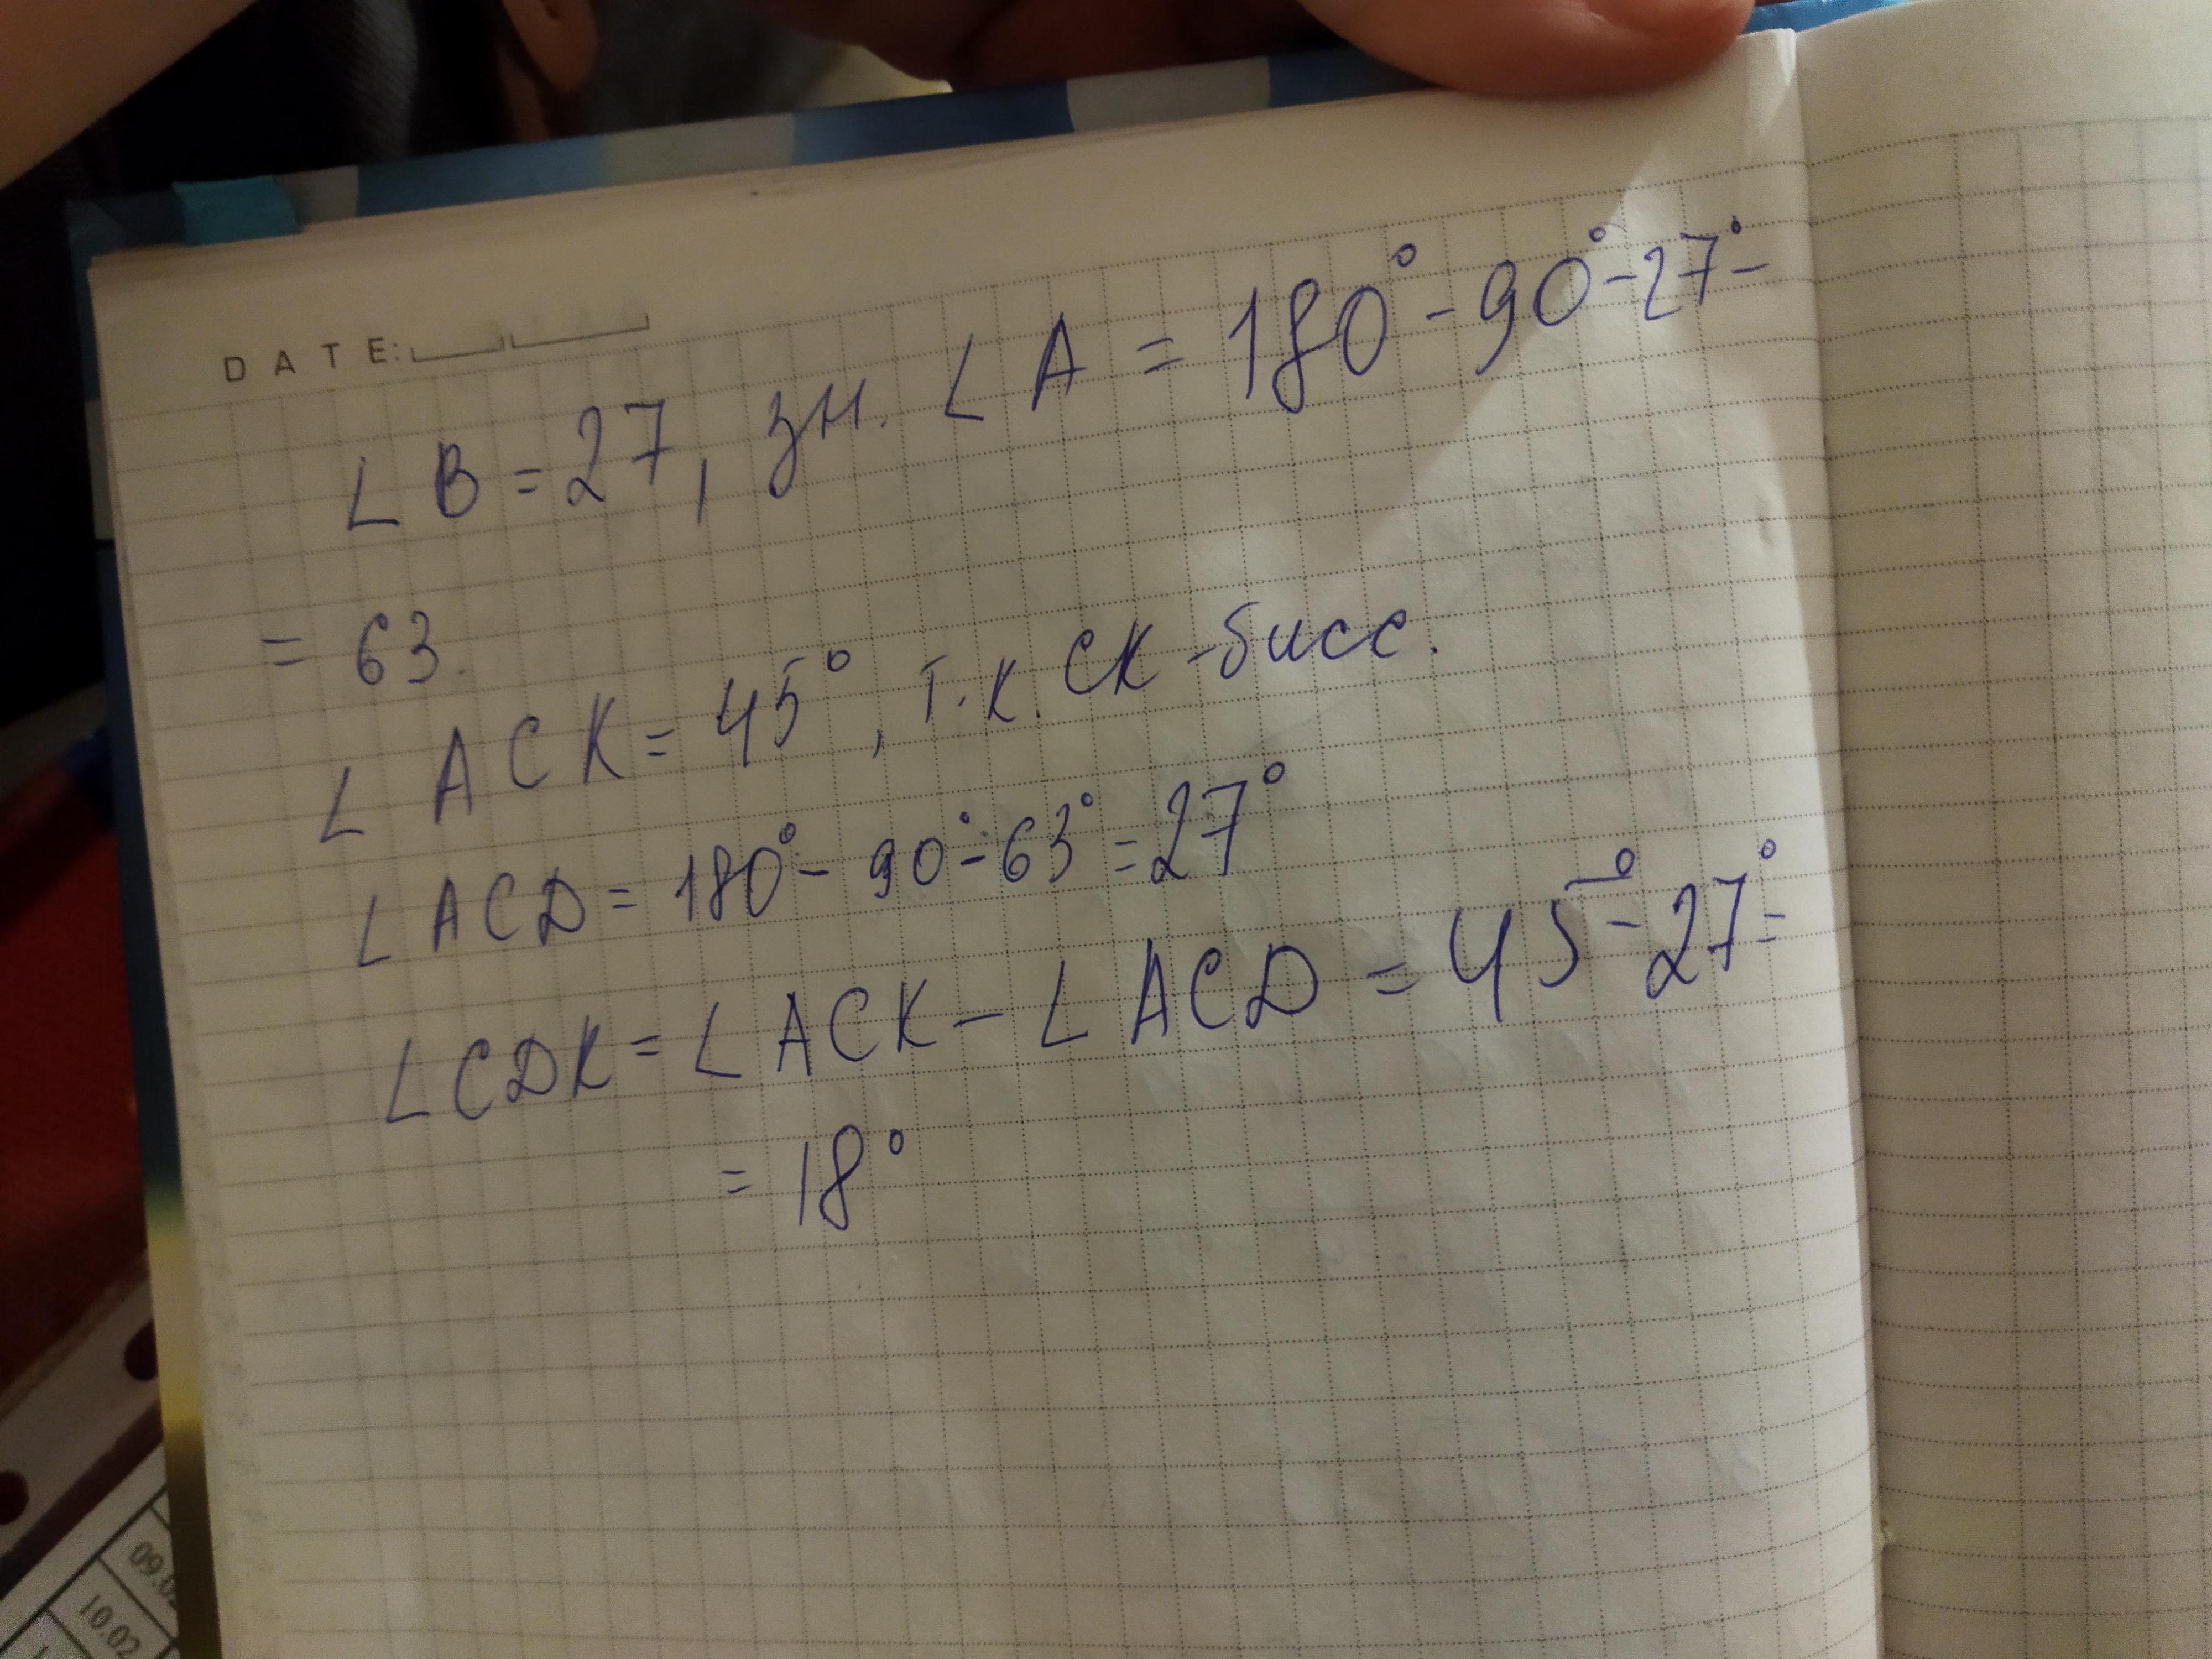 DATE:
∠B=27, зн. ∠A = 180°-90°-27°=
= 63.
∠ACK = 45°, т.к. CK-бисс.
∠ACD = 180°-90°-63°=27°
∠CDK = ∠ACK - ∠ACD = 45°-27°=
= 18°
10.02